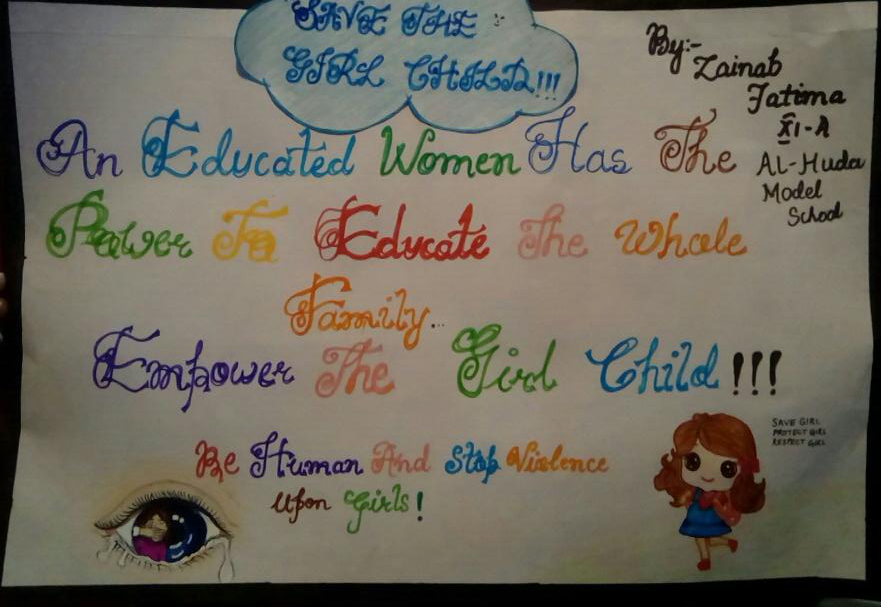 SAVE THE
GIRL CHILD!!!
By:-
Zainab
Fatima
XI-A
AL-Huda
Model
School
An Educated Women Has The
Power To Educate The Whole
Family...
Empower The Girl Child!!!
SAVE GIRL
PROTECT GIRL
RESPECT GIRL
Be Human And Stop Violence
Upon Girls!